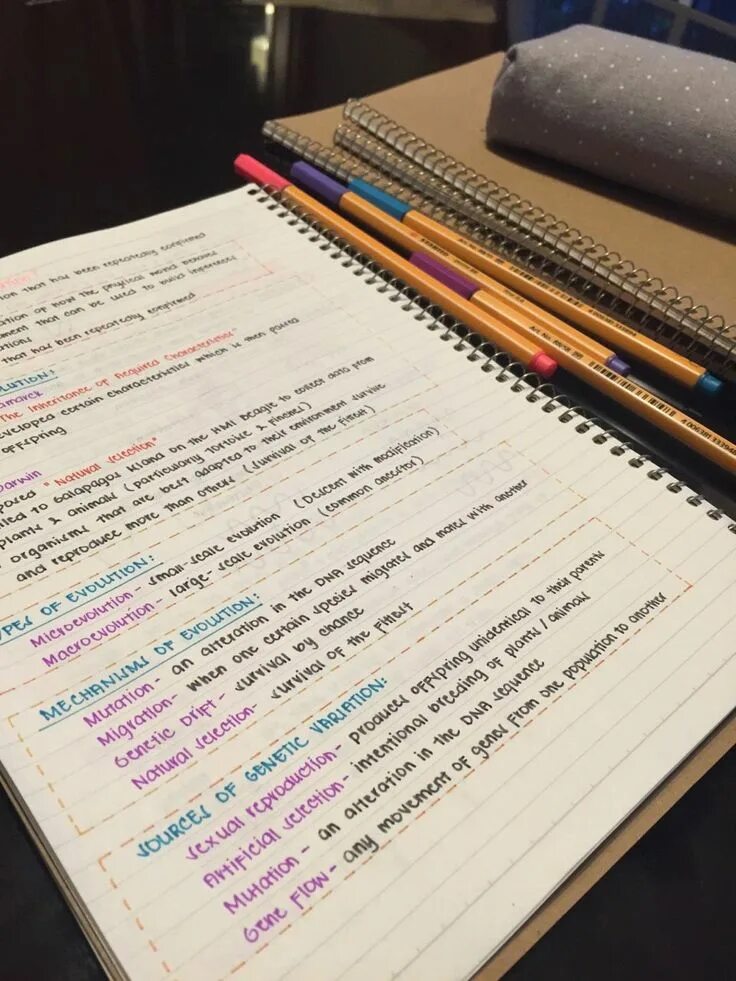 tion that has been repeatedly confirmed
ation of how the physical world behaves
ment that can be used to build inferences
that has been repeatedly confirmed
OLUTION:
amarck
"The Inheritance of Acquired Characteristics"
eveloped certain characteristics which is then passed
offspring
Darwin
posed "Natural Selection"
lled to Galapagos Island on the HMS Beagle to collect data from
plants & animals (particularly Tortoise & Finches)
organisms that are best adapted to their environment survive
and reproduce more than others (survival of the fittest)
YPES OF EVOLUTION:
Microevolution - small-scale evolution (Descent with modification)
Macroevolution - large-scale evolution (common ancestor)
MECHANISMS OF EVOLUTION:
Mutation - an alteration in the DNA sequence
Migration - when one certain species migrates and mates with another
Genetic Drift - survival by chance
Natural selection - survival of the fittest
SOURCES OF GENETIC VARIATION:
Sexual reproduction - produces offspring unidentical to their parents
Artificial selection - intentional breeding of plants/animals
Mutation - an alteration in the DNA sequence
Gene Flow - any movement of genes from one population to another